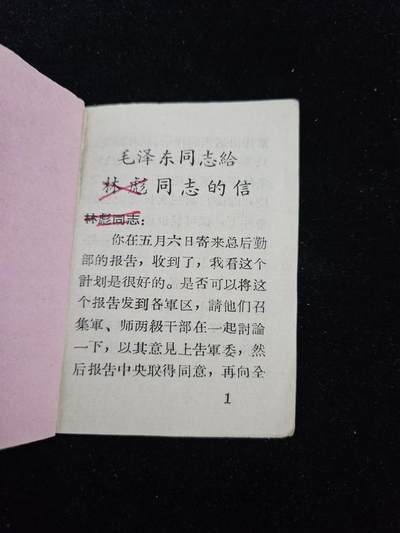 毛泽东同志給
林彪同志的信
林彪同志：
你在五月六日寄来总后勤
部的报告，收到了，我看这个
計划是很好的。是否可以将这
个报告发到各軍区，請他们召
集軍、师两級干部在一起討論
一下，以其意見上告軍委，然
后报告中央取得同意，再向全
1